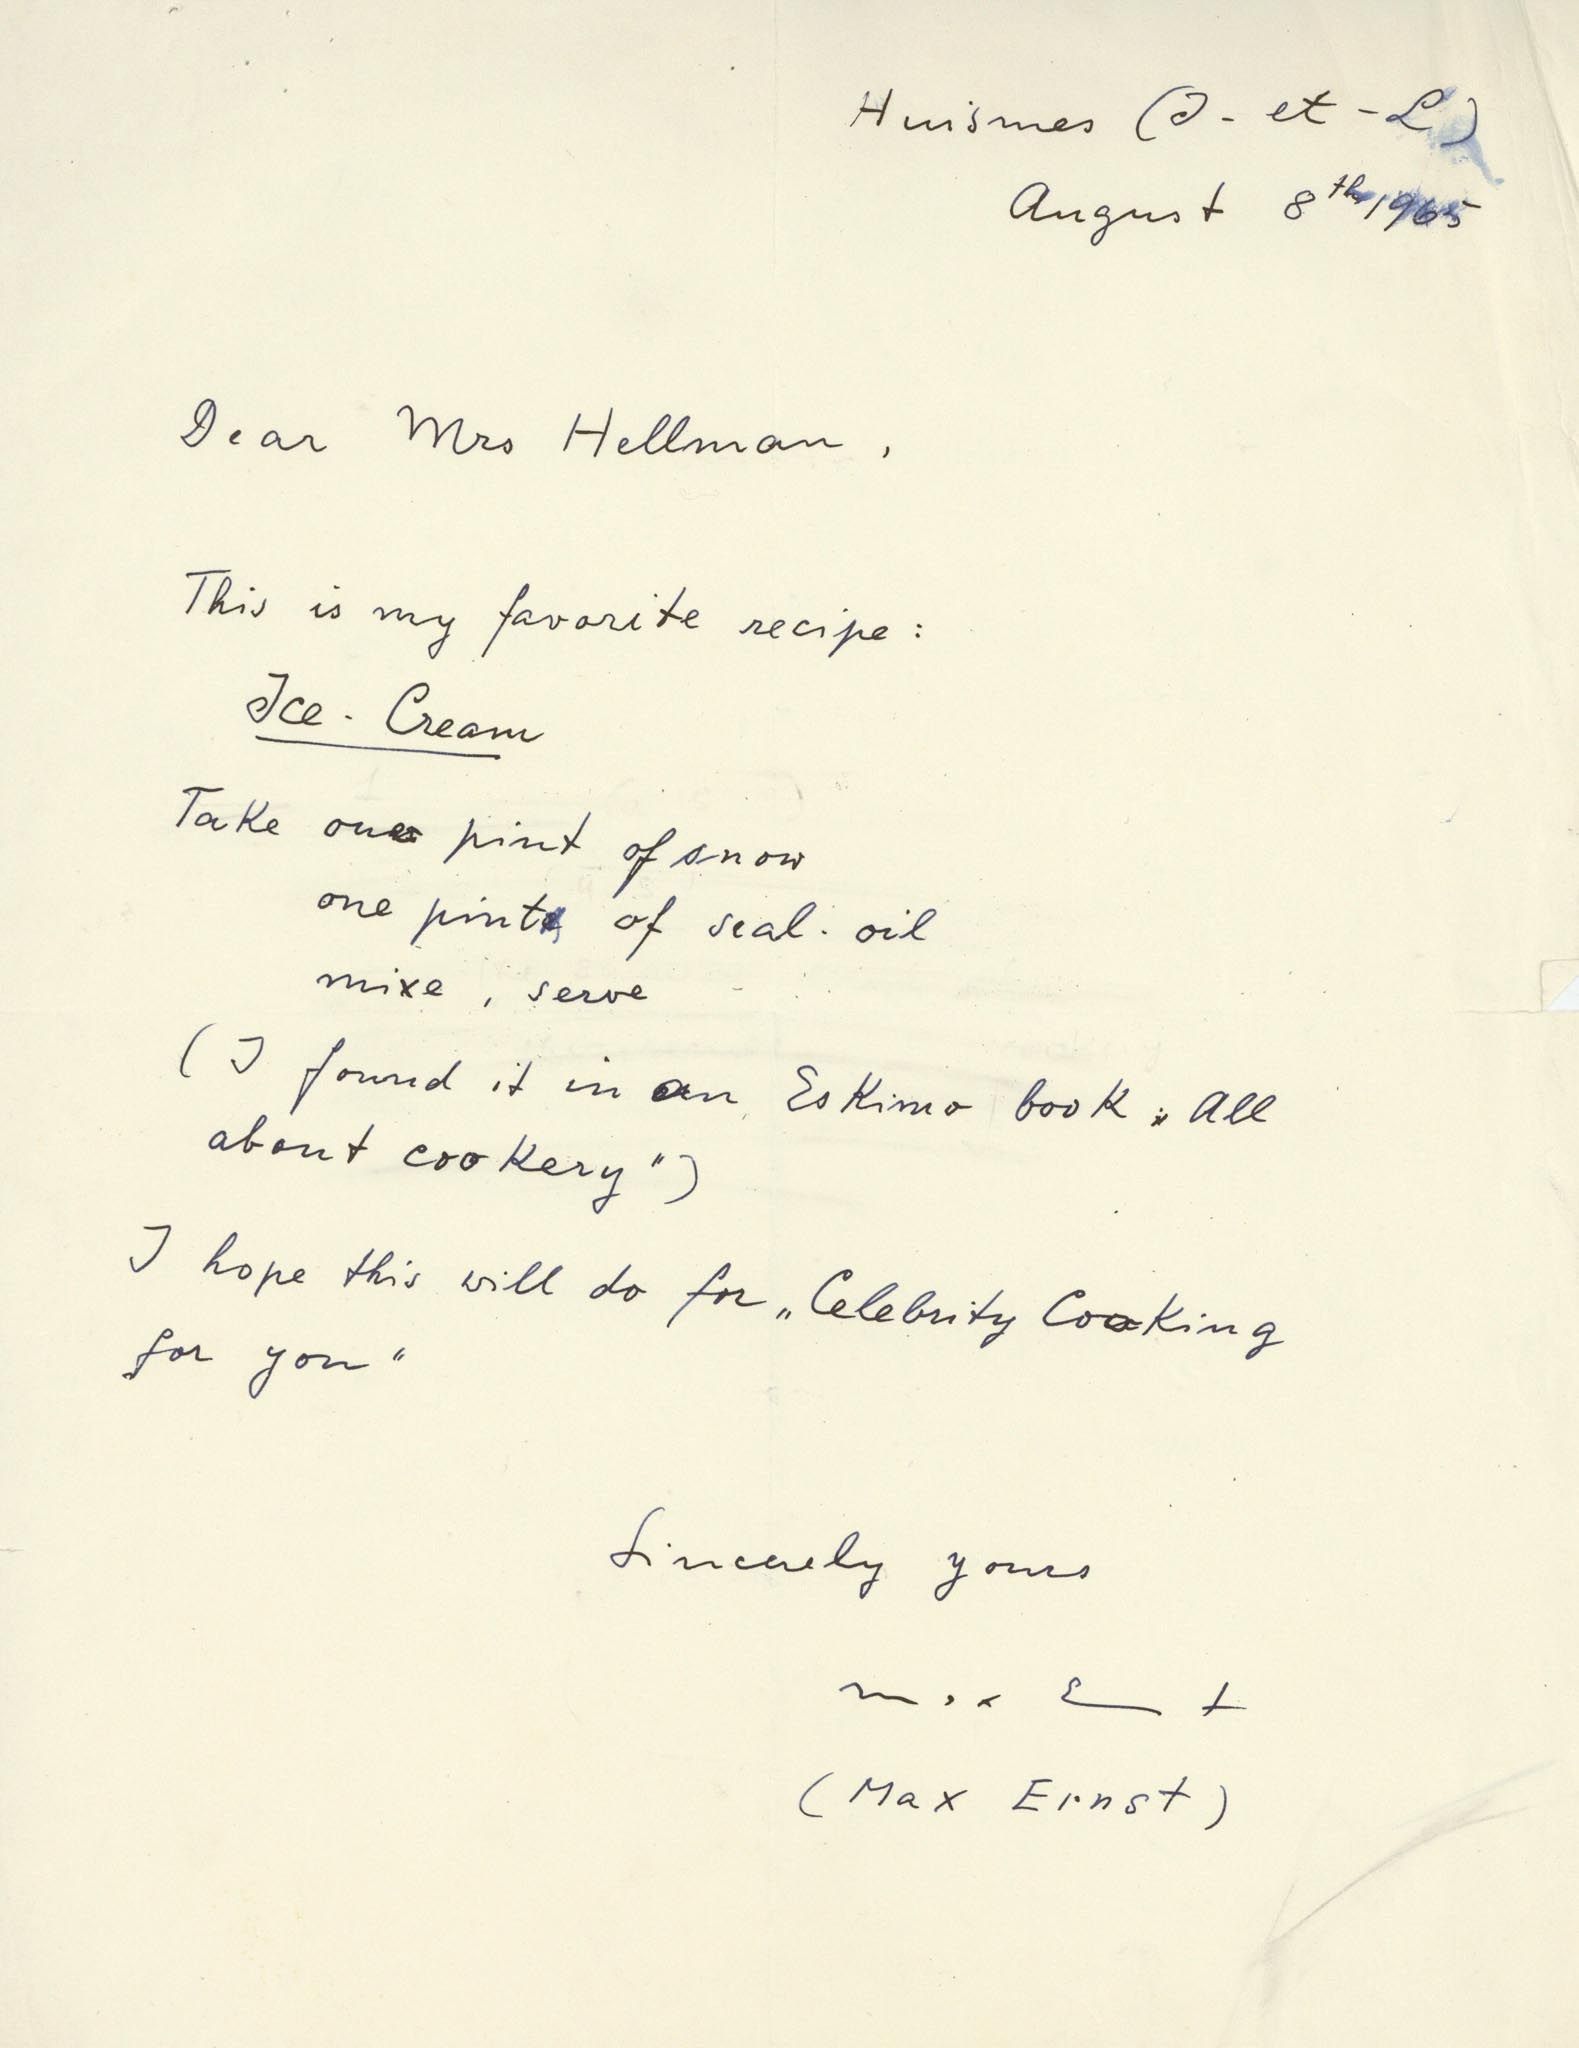 Huismes (I-et-L)
August 8th 1965
Dear Mrs Hellman,
This is my favorite recipe:
Ice-Cream
Take one pint of snow
one pint of seal-oil
mixe, serve
(I found it in an Eskimo book „All
about cookery")
I hope this will do for „Celebrity Cooking
for you"
Sincerely yours
Max Ernst
(Max Ernst)